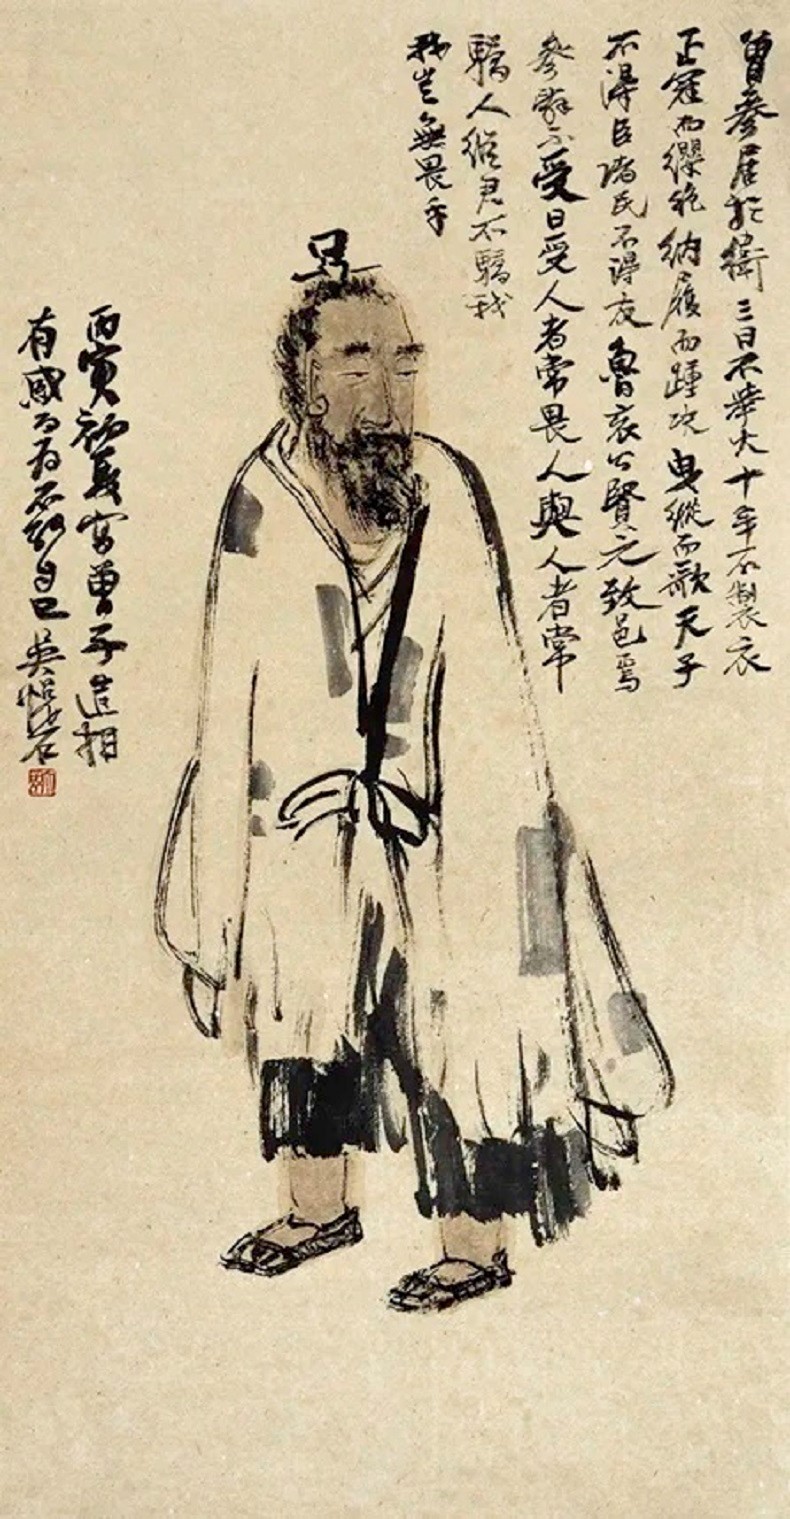 曾參居於衛三日不舉火十年不製衣
正冠而纓絕納履而踵決曳縱而歌天子
不得臣諸不得友魯哀公賢之致邑焉
參辭不受曰受人者常畏人與人者常
驕人縱君不驕我
我豈無畏乎
丙寅初夏寫曾子造相
有感 吳